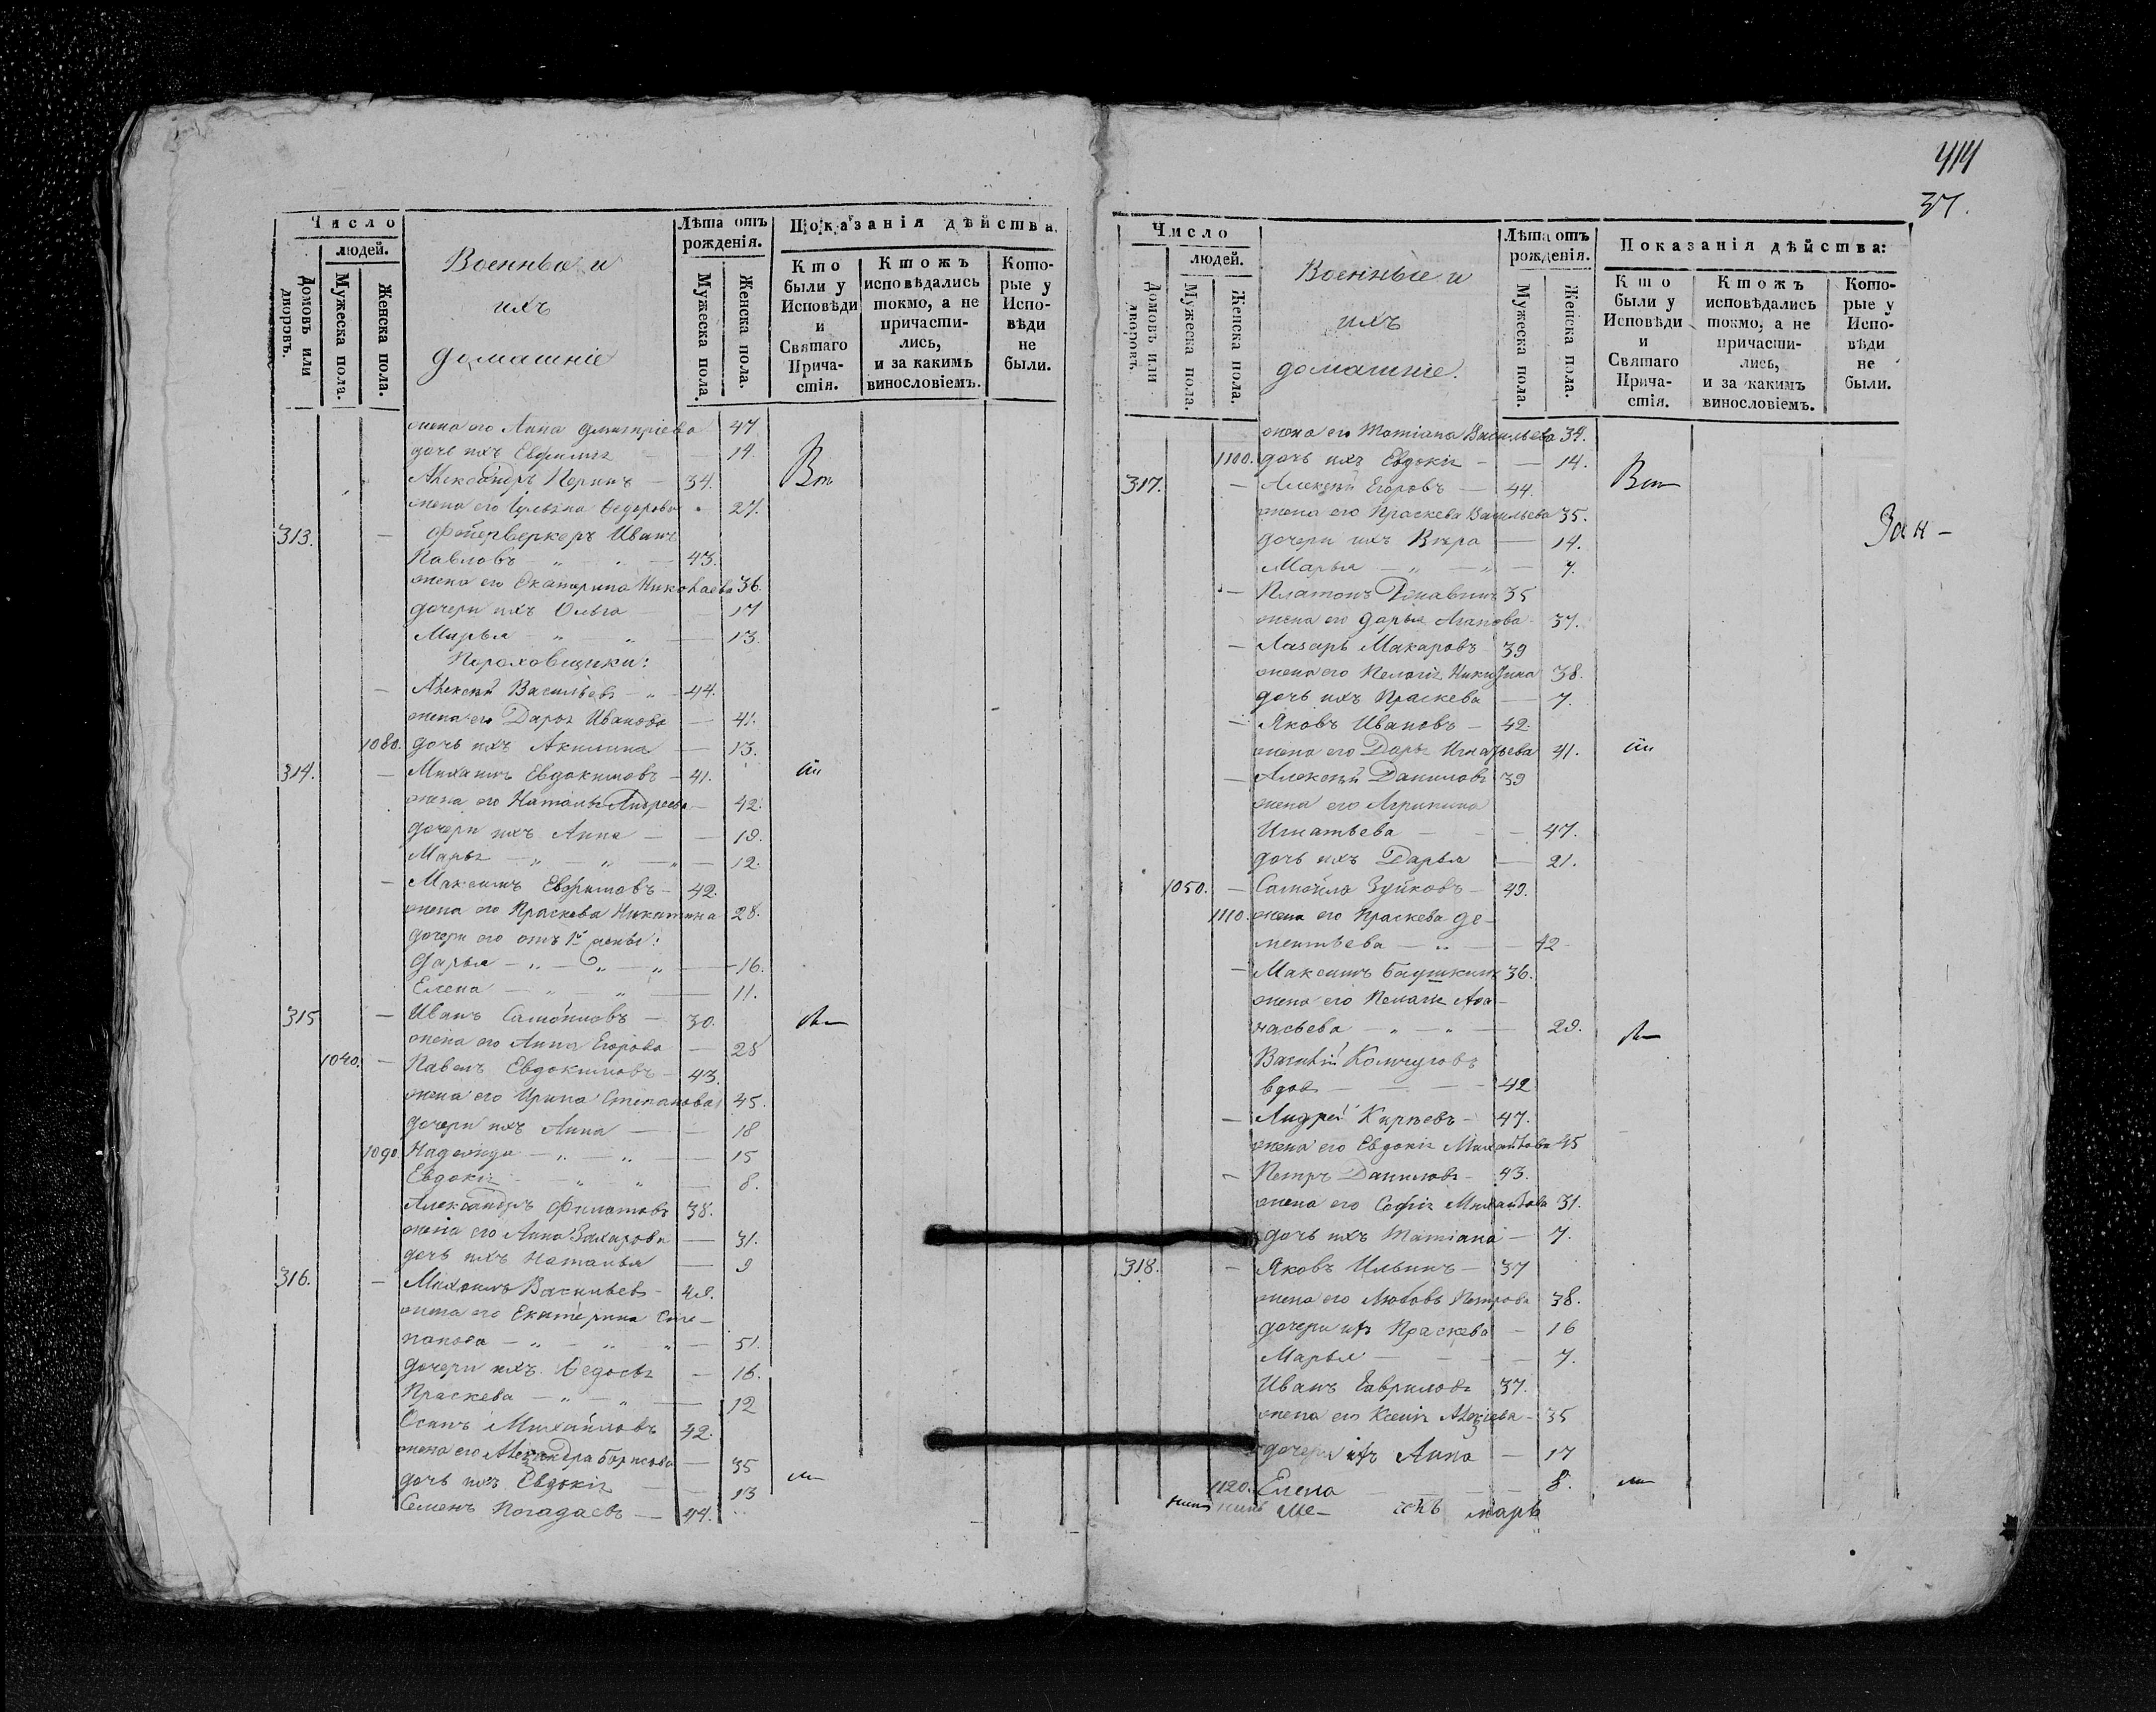 414
37.
Число
людей.
Домовъ или дворовъ.
Мужеска пола.
Женска пола.
Военные и
ихъ
домашніе
Лѣта отъ
рожденія.
Мужеска пола.
Женска пола.
Показанія дѣйства.
Кто
были у
Исповѣди
и
Святаго
Прича-
стія.
Ктожъ
исповѣдались
токмо, а не
причасти-
лись,
и за какимъ
винословіемъ.
Кото-
рые у
Испо-
вѣди
не
были.
жена его Анна Дмитріева 47
дочь ихъ Евфимія — — 14.
Александръ — 34.
жена его Ѳедорова 27.
313. — Фейерверкеръ Иванъ
Павловъ — 43.
жена его Екатерина Николаева 36.
дочери ихъ Ольга 17
Марья — " " — 13
Пороховщики:
— Алексѣй Васильевъ — " — 44.
жена его Дарья Иванова — 41.
1080. дочь ихъ Акилина — 13.
314. — Михаилъ Евдокимовъ — 41.
жена его Наталья Андреева — 42.
дочери ихъ Анна — — 19.
Марья — " — " — " — 12.
— Максимъ Евфимовъ — 42.
жена его Праскева Никитина 28.
дочери его отъ 1й жены:
Дарья — " — " — " — 16.
Елена — " — " — 11.
315 — Иванъ Самойловъ — 30.
жена его Анна Егорова — 28
1040. — Павелъ Евдокимовъ — 43.
жена его Ирина Степанова 45.
дочери ихъ Анна — — 18
1090. Надежда — " — " — — 15
Евдокія — " " — 8.
Александръ Филатовъ 38.
жена его Анна Захарова — 31.
дочь ихъ Наталья — 9
316. — Михаилъ Васильевъ — 48.
жена его Екатерина Сте-
панова — " — " " — 51.
дочери ихъ Ѳедосья — 16.
Праскева — " — " — 12
Осипъ Михайловъ 42.
жена его Александра Борисова — 35
дочь ихъ Евдокія — — 13
Семенъ Погадаевъ — 44.
Число
людей.
Домовъ или дворовъ.
Мужеска пола.
Женска пола.
Военные и
ихъ
домашніе.
Лѣта отъ
рожденія.
Мужеска пола.
Женска пола.
Показанія дѣйства:
Кто
были у
Исповѣди
и
Святаго
Прича-
стія.
Ктожъ
исповѣдались
токмо, а не
причасти-
лись,
и за какимъ
винословіемъ.
Кото-
рые у
Испо-
вѣди
не
были.
жена его Татіана Васильева 34.
1100. дочь ихъ Евдокія — — 14.
317. — Алексѣй Егоровъ — 44.
жена его Праскева Васильева 35.
дочери ихъ Вѣра — 14.
Марья — " — " — 7.
— Платонъ 35
жена его Дарья Агапова 37.
— Лазарь Макаровъ 39
жена его Пелагія 38.
дочь ихъ Праскева — 7.
— Яковъ Ивановъ — 42.
жена его Дарья Игнатьева 41.
— Алексѣй Даниловъ 39
жена его Агрипина
Игнатьева — — — 47.
дочь ихъ Дарья — 21.
1050. — Самойла Зуйковъ — 49.
1110. жена его Праскева Де-
ментьева — " — — 42
— Максимъ 36.
жена его Пелагія Аѳа-
насьева — " — " — 29.
Василій
вдовъ — — — 42
— Андрей Карпевъ — 47.
жена его Евдокія Михайлова 45
— Петръ Даниловъ — 43.
жена его Софія Михайлова 31.
дочь ихъ Татіана — 7.
318. — Яковъ Ильинъ — 37
жена его Любовь Петрова 38.
дочери ихъ Праскева — 16
Марья — — — 7.
Иванъ Гавриловъ 37.
жена его Ксенія — 35
дочери ихъ Анна — 17
1120. Елена — — — 8.